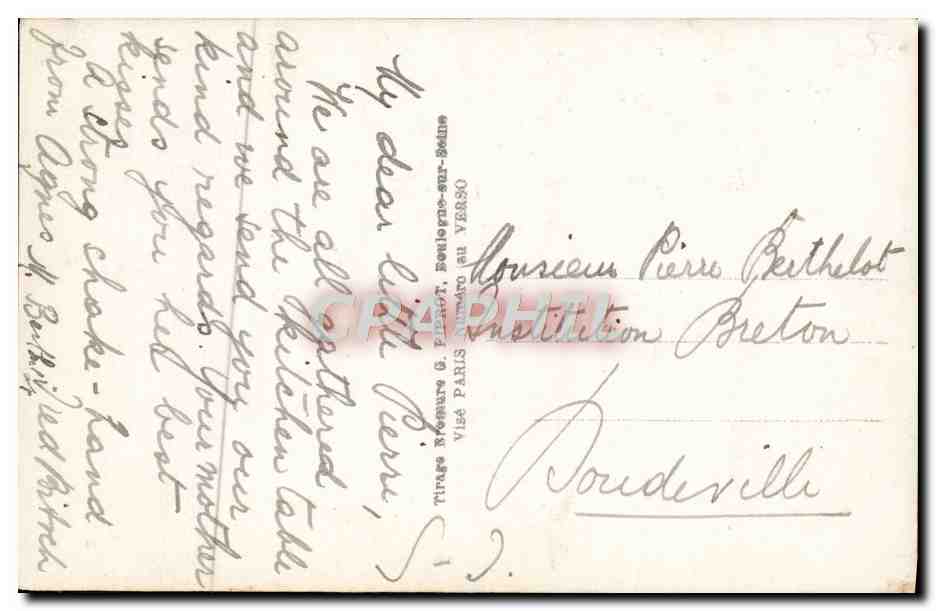 My dear little Pierre,
We are all gathered
around the kitchen table
and we send you our
kind regards. Your mother
sends you her best
kisses
A strong shake-hand
from Agnes M. Berthelot
Tirage Bromure G. PIEROT, Boulogne-sur-Seine
Visé PARIS Numéro au VERSO
Monsieur Pierre Berthelot
Institution Breton
Doudeville
S. I.
CPAPHIL